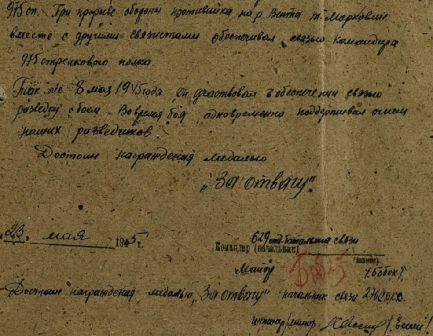 975 сп. При прорыве обороны противника на р. Вента м.
вместе с другими связистами обеспечивал связью командира
975 стрелкового полка
Так же 8 мая 1945 года он участвовал в обеспечении связью
разведку боем. Во время боя одновременно поддерживал огнем
наших разведчиков
Достоин награждения медалью
„За отвагу".
„23" мая 1945 г.
629 отд. батальона связи
Командир (начальник)
Майор
Достоин награждения медалью „За отвагу" начальник связи
инженер майор